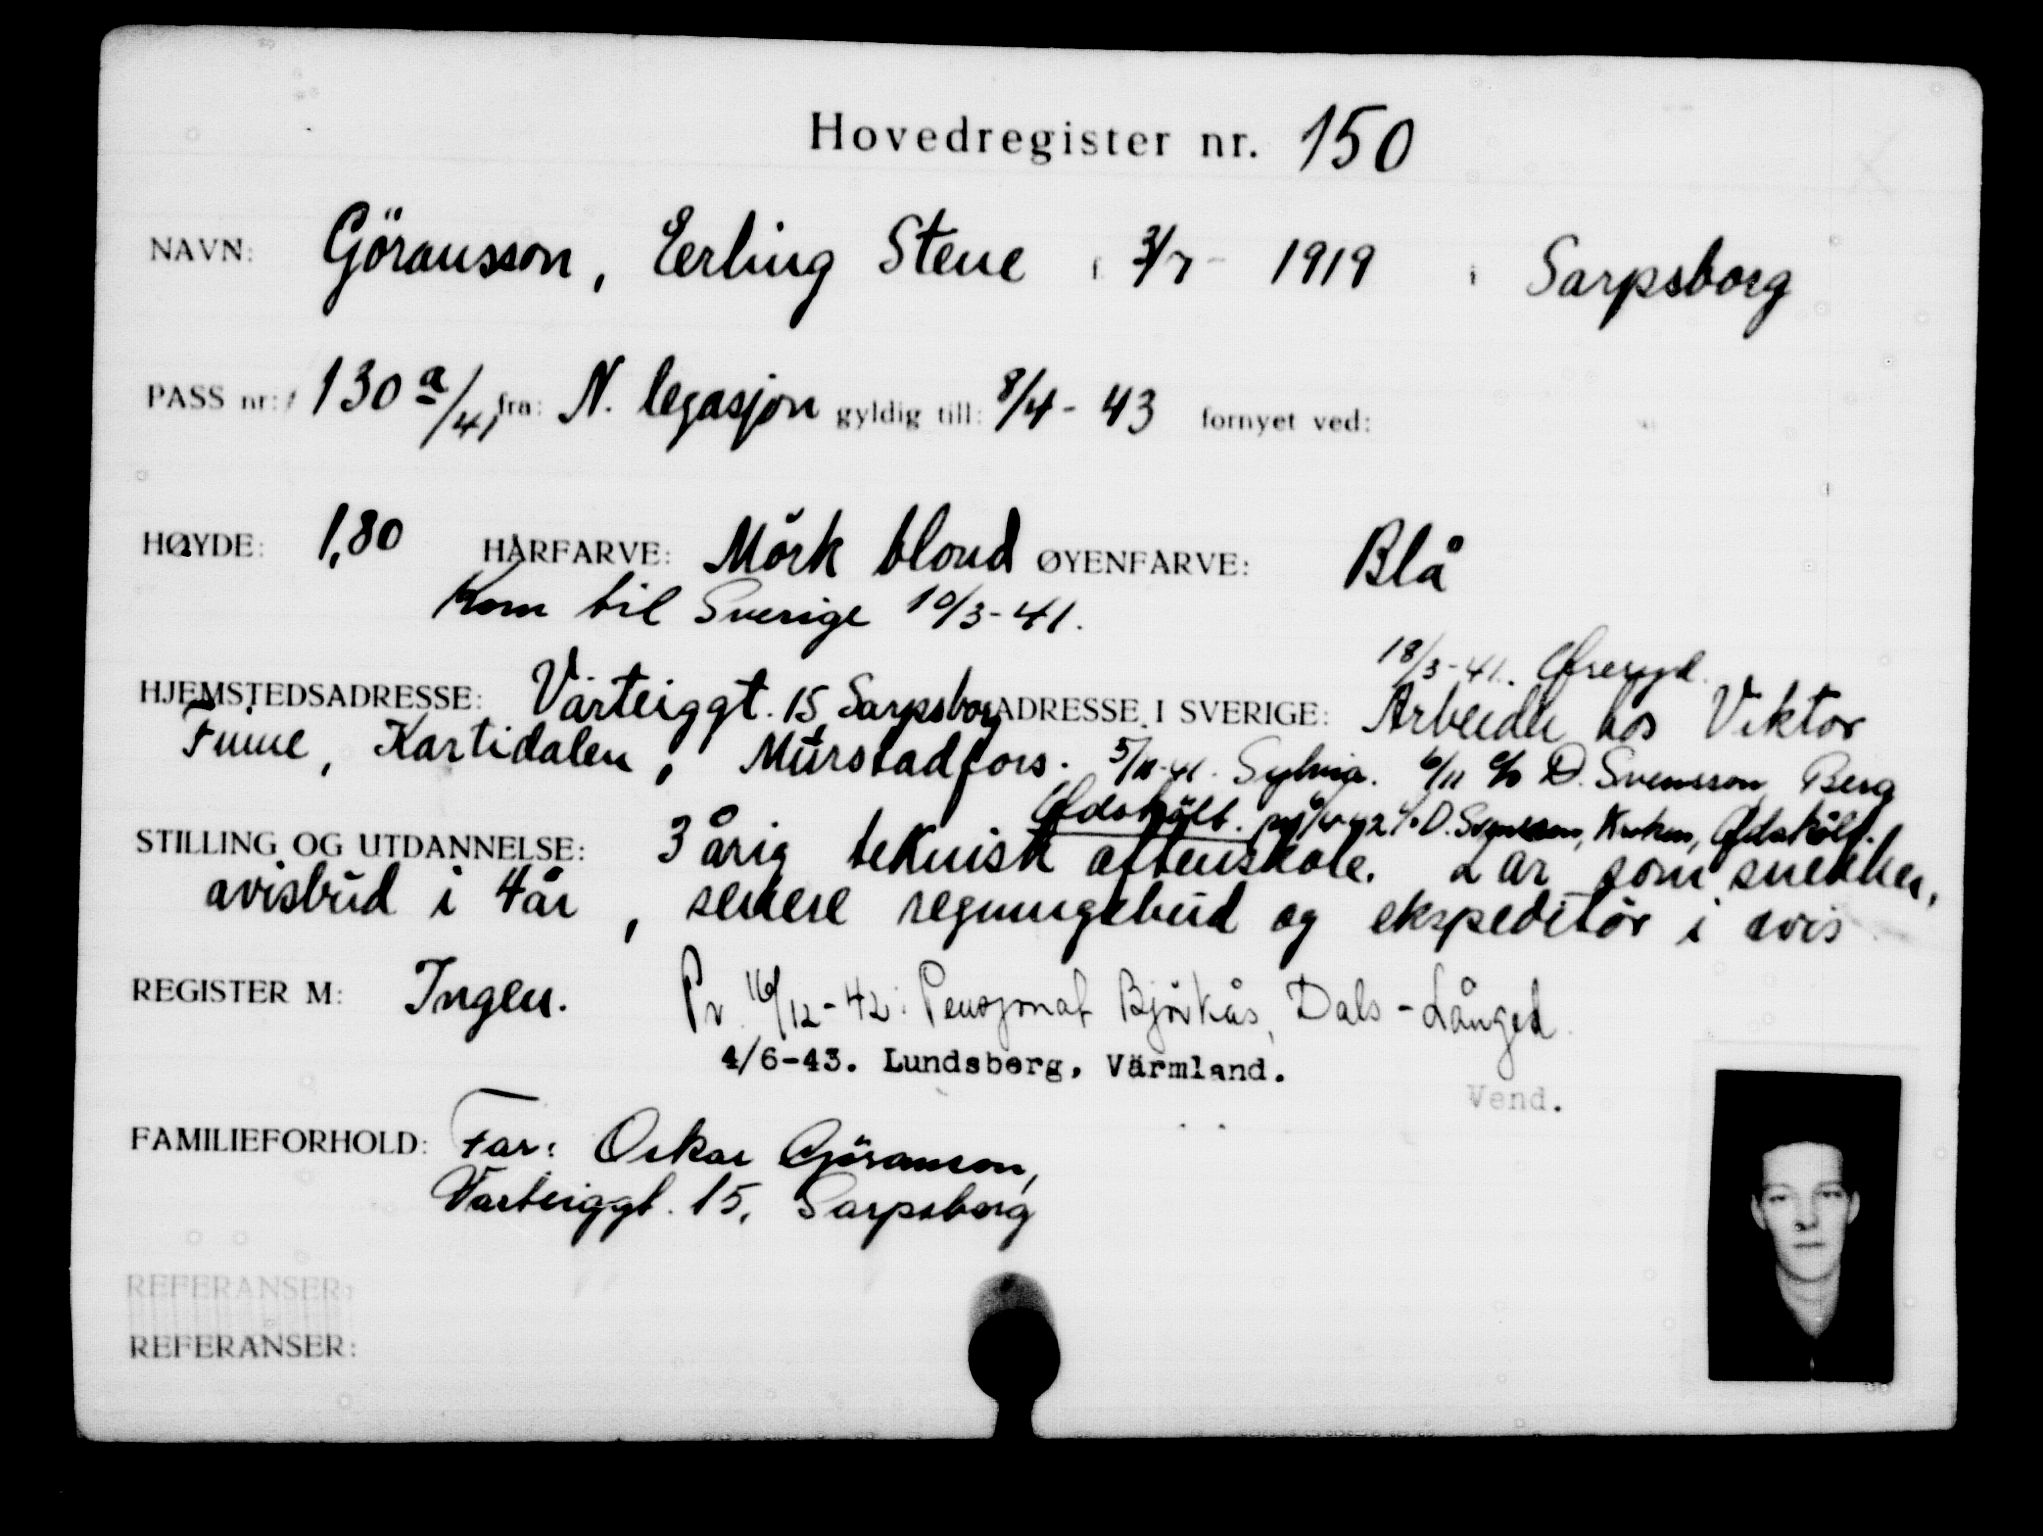 Hovedregister nr. 150
NAVN: Göransson, Eerling Stene 3/7- 1919 i Sarpsborg
PASS nr: 130 a/41 fra: N. legasjon gyldig till: 8/4- 43 fornyet ved:
HØYDE: 1,80 HÅRFARVE: Mörk blond ØYENFARVE: Blå
Kom til Sverige 10/3-41.
18/3-41. Öreryd.
HJEMSTEDSADRESSE: Varteiggt. 15, Sarpsborg ADRESSE I SVERIGE: Arbeider hos Viktor
Kartidalen, 5/11-41. Sylvia. 6/11 c/o D. Svensson, Berg
Ödskölt. c/o D. Svensson, Ödskölt.
STILLING OG UTDANNELSE: 3 årig teknisk aftenskole. 2 år som snekker,
avisbud i 4 år, senere regningsbud og ekspeditör i avis
REGISTER M: Ingen. Pr. 16/12-42: Pensjonat Björkås, Dals-Långed
4/6-43. Lundsberg, Värmland.
Vend.
FAMILIEFORHOLD: Far: Oskar Göransson,
Varteiggt. 15, Sarpsborg
REFERANSER:
REFERANSER: